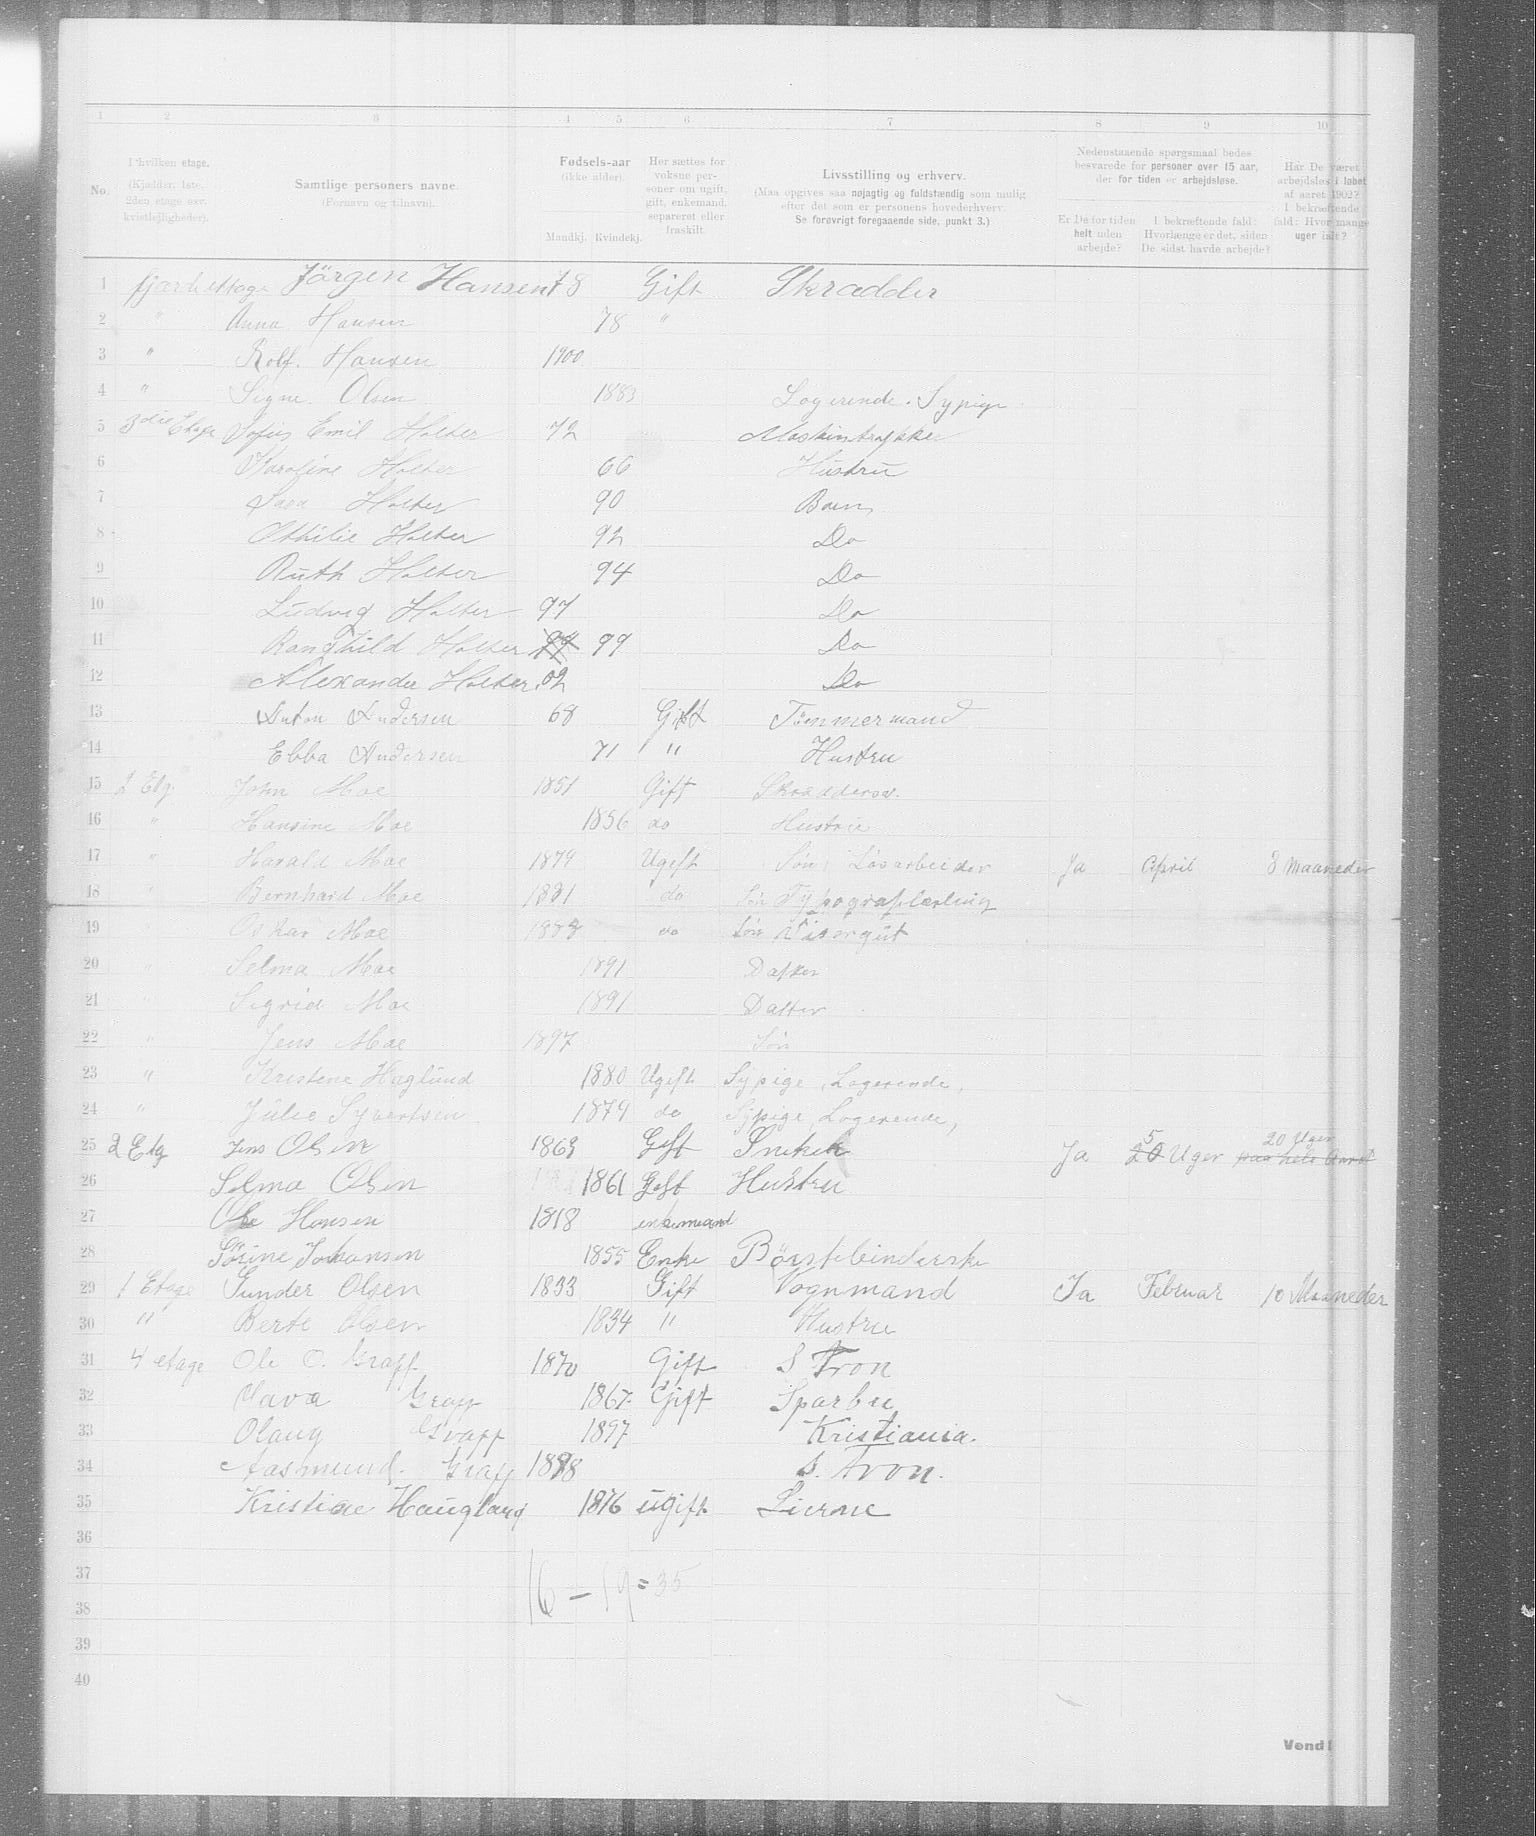 1 2 3 4 5 6 7 8 9 10
No.
I hvilken etage. (Kjælder, 1ste, 2den etage osv. kvistlejligheder).
Samtlige personers navne. (Fornavn og tilnavn).
Fødsels-aar (ikke alder). Mandkj. Kvindekj.
Her sættes for voksne personer om ugift, gift, enkemand, separeret eller fraskilt.
Livsstilling og erhverv. (Maa opgives saa nøjagtig og fuldstændig som mulig efter det som er personens hovederhverv. Se forøvrigt foregaaende side, punkt 3.)
Nedenstaaende spørgsmaal bedes besvarede for personer over 15 aar, der for tiden er arbejdsløse.
Er De for tiden helt uden arbejde?
I bekræftende fald: Hvorlænge er det, siden De sidst havde arbejde?
Har De været arbejdsløs i løbet af aaret 1902? I bekræftende fald: Hvor mange uger ialt?
1 fjærde etage Jörgen Hansen 78 Gift Skrædder
2 " Anna Hansen 78 "
3 " Rolf. Hansen 1900
4 " Signe. Olsen 1883 Logerende. Sypige
5 3die Etage Sofus Emil Holter 72 Maskintrykker
6 Karoline Holter 66 Hustru
7 Holter 90 Barn
8 Othilie Holter 92 Do
9 Ruth Holter 94 Do
10 Ludvig Holter 97 Do
11 Ranghild Holter 99 99 Do
12 Alexander Holter. 02 Do
13 Anton Andersen 68 Gift Tömmermand
14 Ebba Andersen 71 " Hustru
15 2 Etg. John Moe 1851 Gift Skræddersv.
16 " Hansine Moe 1856 do Hustru
17 " Harald Moe 1879 Ugift Søn Løsarbeider Ja April 8 Maaneder
18 " Bernhard Moe 1881 do Søn Typograflærling
19 Oskar Moe 1888 do Søn Visergut
20 " Selma Moe 1891 Datter
21 " Sigrid Moe 1891 Datter
22 " Jens Moe 1897 Søn
23 " Kristene Haglund 1880 Ugift Sypige, Logerende,
24 " Julie Syvertsen 1879 do Sypige, Logerende,
25 2 Etg Jens Olsen 1863 Gift Snekker Ja 5 20 Uger 20 Uger paa hele Aaret
26 Selma Olsen 1861 Gift Hustru
27 Ole Hansen 1818 enkemand
28 Sörine Johansen 1855 Enke Börstebinderske
29 1 Etage Gunder Olsen 1833 Gift Vognmand Ja Februar 10 Maaneder
30 " Berte Olsen 1834 " Hustru
31 4 etage Ole O. Graff 1870 Gift S Fron
32 Graff 1867. Gift Sparbu
33 Olaug Graff 1897 Kristiania.
34 Aasmund. Graff 1898 S. Fron.
35 Kristine Haugland 1876 ugift Lierne
36
37
16 – 19 = 35
38
39
40
Vend!